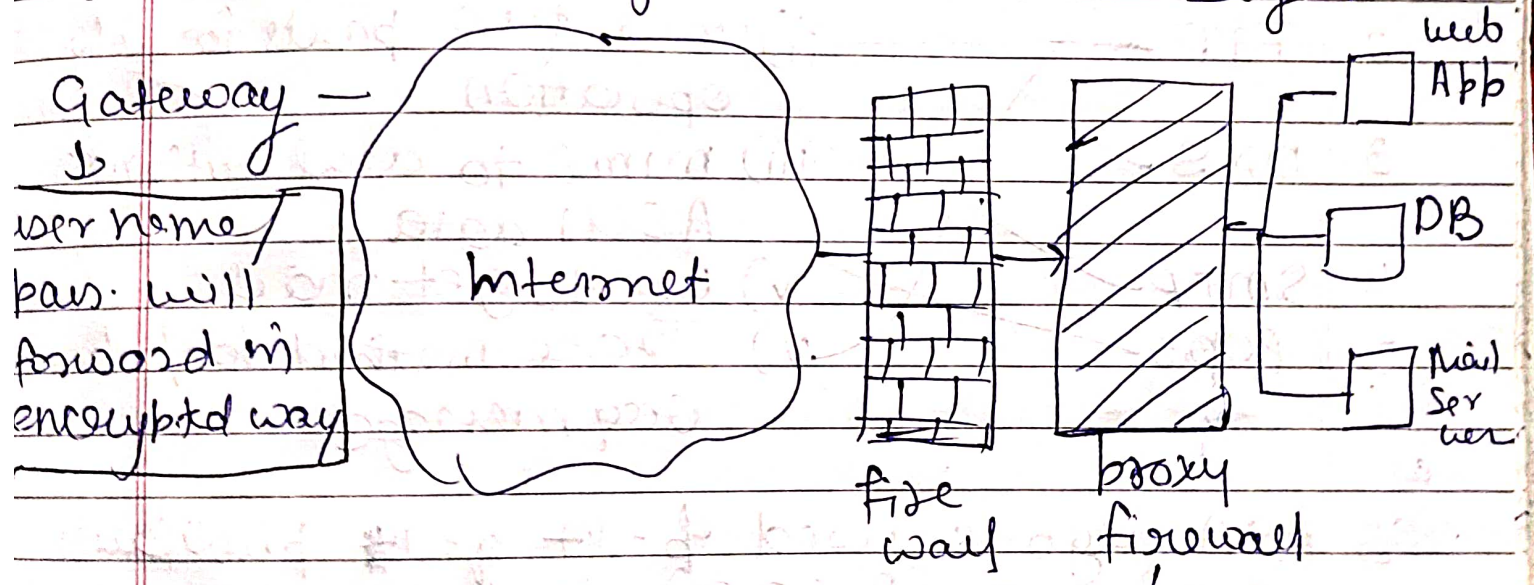 Gateway —
user name/
pas. will
forward in
encryptd way
Internet
fire
wall
proxy
firewall
web
App
DB
Mail
Ser
ver